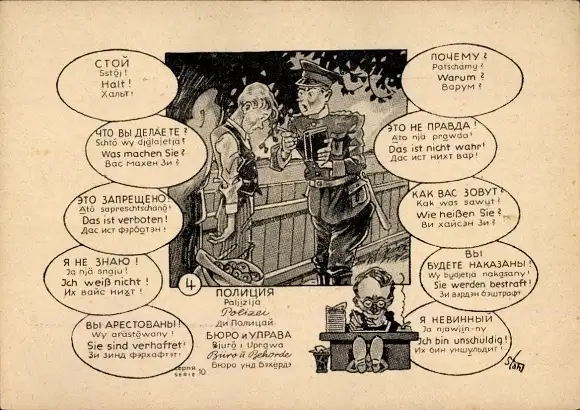 СТОЙ
Sstôj!
Halt!
Хальт!
ЧТО ВЫ ДЕЛАЕТЕ?
Schtó wy djglajetja?
Was machen Sie?
Вас махен Зи?
ЭТО ЗАПРЕЩЕНО!
Ätô sapreschtschànô!
Das ist verboten!
Дас ист фэрботэн!
Я НЕ ЗНАЮ!
Ja njä snaju!
Ich weiß nicht!
Их вайс нихт!
ВЫ АРЕСТОВАНЫ!
Wy aràstôwany!
Sie sind verhaftet!
Зи зинд фэрхафтэт!
4
ПОЛИЦИЯ
Palijzija
Polizei
Ди Полицай
БЮРО и УПРАВА
Bjurô i Uprawa
Büro u Behörde
Бюро унд Бэхердэ
СЕРИЯ
SERIE 10
ПОЧЕМУ?
Patschàmy?
Warum?
Варум?
ЭТО НЕ ПРАВДА!
Äto njä prawda!
Das ist nicht wahr!
Дас ист нихт вар!
КАК ВАС ЗОВУТ?
Kak was sawut?
Wie heißen Sie?
Ви хайсэн Зи?
ВЫ
БУДЕТЕ НАКАЗАНЫ!
Wy bydjetja nakasany!
Sie werden bestraft!
Зи вэрдэн бэштрафт
Я НЕВИННЫЙ
Ja njawijn-ny
Ich bin unschuldig!
Их бин уншульдиг!